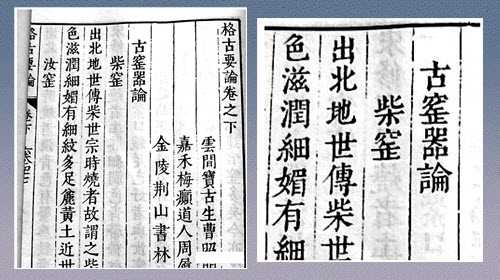 格古要論卷之下
雲間寶古生曹
嘉禾梅癲道人周履
金陵荊山書林
古窰器論
柴窰
出北地世傳柴世宗時燒者故謂之柴
色滋潤細媚有細紋多足麄黃土近世
汝窰
格古要論
卷下
古窰器論
柴窰
出北地世傳柴世
色滋潤細媚有細